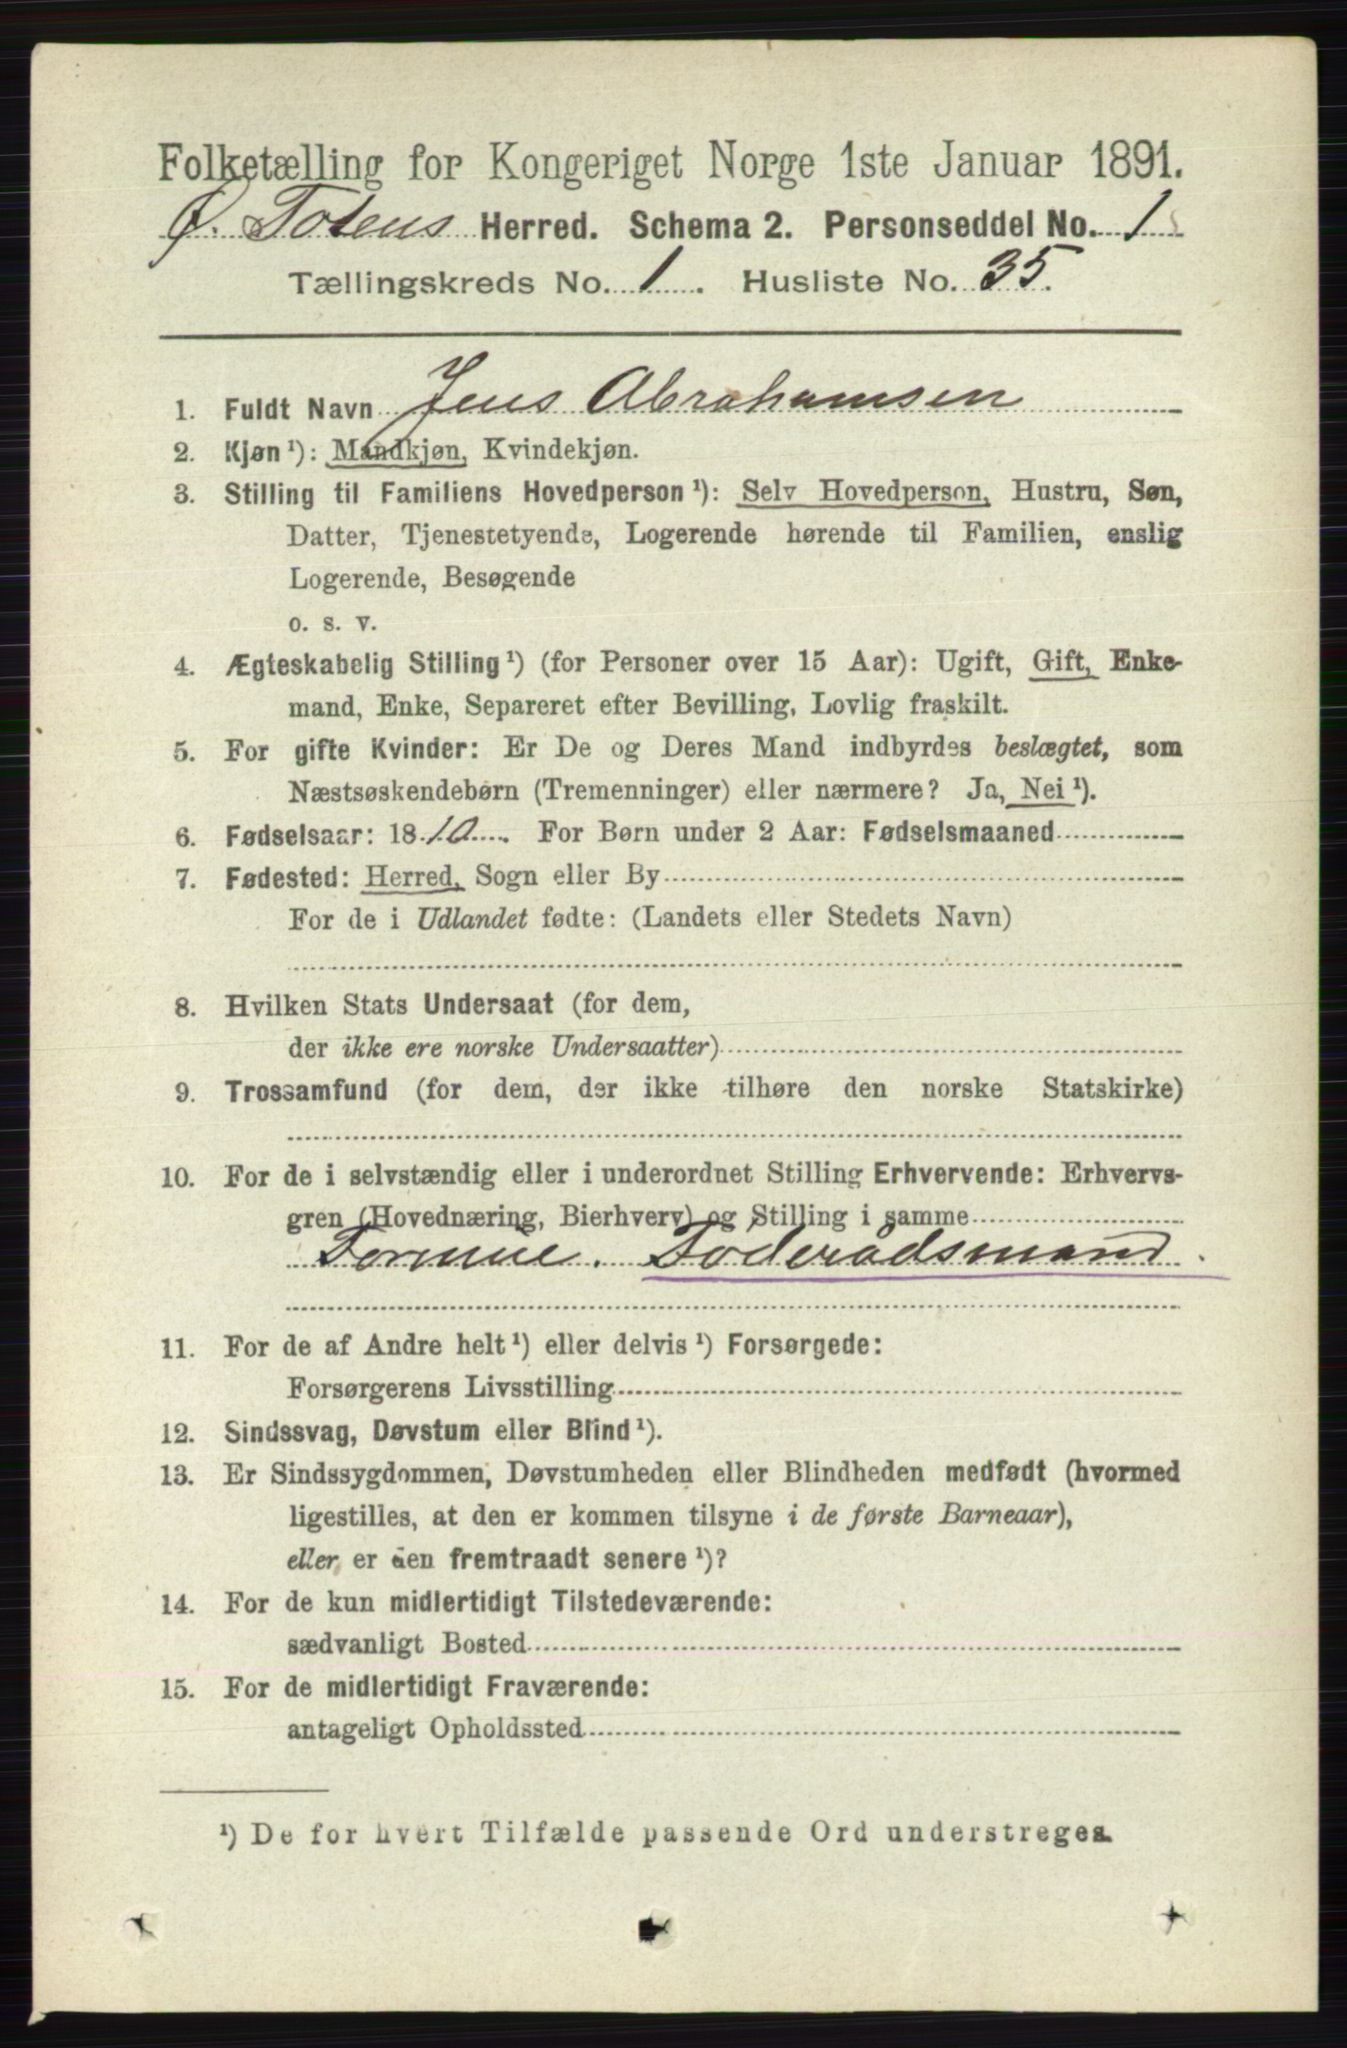 Folketælling for Kongeriget Norge 1ste Januar 1891.
Ø. Totens Herred. Schema 2. Personseddel No. 1
Tællingskreds No. 1. Husliste No. 35.
1. Fuldt Navn Jens Abrahamsen
2. Kjøn ¹): Mandkjøn, Kvindekjøn.
3. Stilling til Familiens Hovedperson ¹): Selv Hovedperson, Hustru, Søn,
Datter, Tjenestetyende, Logerende hørende til Familien, enslig
Logerende, Besøgende
o. s. v.
4. Ægteskabelig Stilling ¹) (for Personer over 15 Aar): Ugift, Gift, Enke-
mand, Enke, Separeret efter Bevilling, Lovlig fraskilt.
5. For gifte Kvinder: Er De og Deres Mand indbyrdes beslægtet, som
Næstsøskendebørn (Tremenninger) eller nærmere? Ja, Nei ¹).
6. Fødselsaar: 1810. For Børn under 2 Aar: Fødselsmaaned
7. Fødested: Herred, Sogn eller By
For de i Udlandet fødte: (Landets eller Stedets Navn)
8. Hvilken Stats Undersaat (for dem,
der ikke ere norske Undersaatter)
9. Trossamfund (for dem, der ikke tilhøre den norske Statskirke)
10. For de i selvstændig eller i underordnet Stilling Erhvervende: Erhvervs-
gren (Hovednæring, Bierhverv) og Stilling i samme
Formue. Föderådsmand.
11. For de af Andre helt ¹) eller delvis ¹) Forsørgede:
Forsørgerens Livsstilling
12. Sindssvag, Døvstum eller Blind ¹).
13. Er Sindssygdommen, Døvstumheden eller Blindheden medfødt (hvormed
ligestilles, at den er kommen tilsyne i de første Barneaar),
eller er den fremtraadt senere ¹)?
14. For de kun midlertidigt Tilstedeværende:
sædvanligt Bosted
15. For de midlertidigt Fraværende:
antageligt Opholdssted
¹) De for hvert Tilfælde passende Ord understreges.